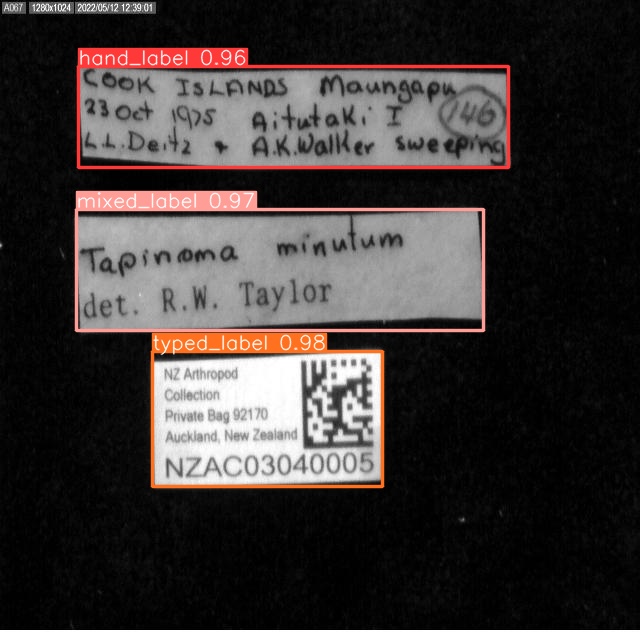 A067 1280x1024 2022/05/12 12:39:01
hand_label 0.96
COOK ISLANDS Maungapu
23 Oct 1975 Aitutaki I 146
L.L.Deitz + A.K.Walker sweeping
mixed_label 0.97
Tapinoma minutum
det. R.W. Taylor
typed_label 0.98
NZ Arthropod
Collection
Private Bag 92170
Auckland, New Zealand
NZAC03040005